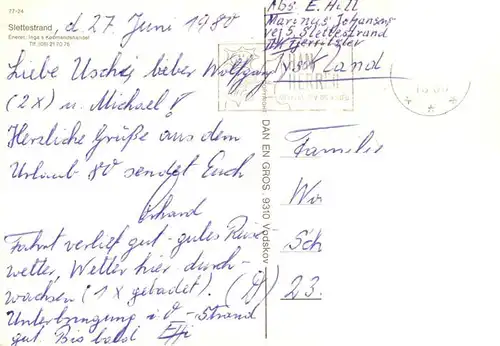 17-24
Slettestrand, d 27. Juni 1980
Eneret, Inga's Købmandshandel
Tlf. (08) 21 70 75
Liebe Uschi, lieber Wolfgang
(2x) u. Michael!
Herzliche Grüße aus dem
Urlaub 80 sendet Euch
Erhard
Fahrt verlief gut - gutes Reise-
wetter, Wetter hier durch-
wachsen (1 x gebadet).
Unterbringung i. O - Strand
gut. Bis bald Effi
DAN EN GROS. 9310 Vodskov
Abs E. Hill
Marinus Johansens
vej 5, Slettestrand
Fjerritslev
Familie
Wi
Sch
23.